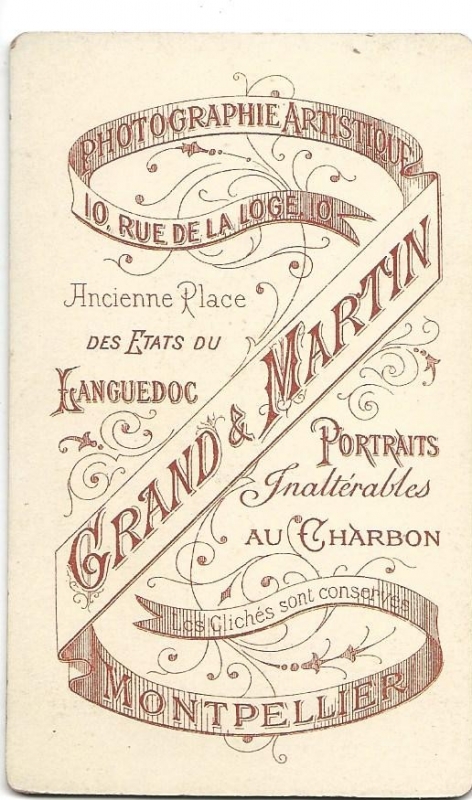 PHOTOGRAPHIE ARTISTIQUE
10, RUE DE LA LOGE, 10
Ancienne Place
DES ETATS DU
LANGUEDOC
GRAND & MARTIN
PORTRAITS
Inaltérables
AU CHARBON
Les Clichés sont conservés
MONTPELLIER